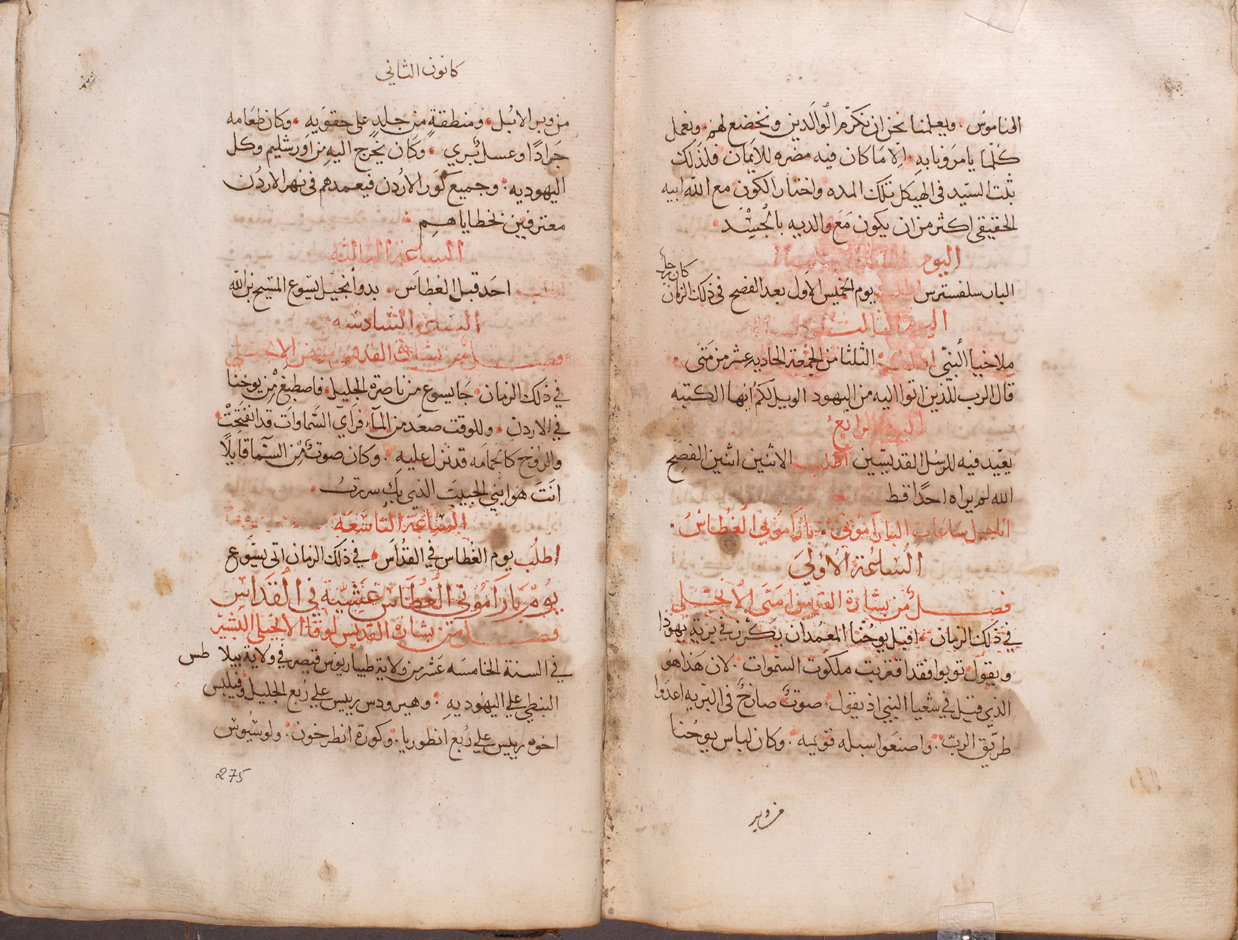 الناموس. ويعلمنا نحن ان نكرم الوالدين ونخضع لهم. ونعمل
كلما يامرونا به. الا ما كان فيه مضره للايمان. فلذلك
ثبت السيد في الهيكل تلك المده واختار الكون مع الله ابيه
الحقيقي اكثر من ان يكون مع والديه بالجسد.
اليوم
الباب سلفسترس يوم الخميس الاول بعد الفصح في ذلك الزمان
كان رجل
اليوم الثالث
ملاخيا النبي الثلثا من الجمعة الحاديه عشر من متى
قال الرب للذين اتوا اليه من اليهود الويل لكم ايها الكتبه
اليوم الرابع
يعيد فيه للرسل القديسين اطلب الاثنين اثنين الفصح
الله لم يراه احدًا قط
اناجيل ساعات الباراموني. باراموني الغطاس.
الساعة الاولى
فصل من بشارة القديس متى الانجيلي
في ذلك الزمان. اقبل يوحنا المعمدان يكرز في برية يهوذا
ويقول توبوا فقد اقتربت ملكوت السموات. لان هذا هو
الذي قيل في شعيا النبي اذ يقول. صوت صارخ في البريه اعدوا
طريق الرب. واصنعوا سبله قويمه. وكان لباس يوحنا
من وبر
كانون الثاني
من وبر الابل. ومنطقة من جلد على حقويه. وكان طعامه
جرادًا وعسل بري. وكان يخرج اليه من اورشليم وكل
اليهوديه. وجميع كور الاردن فيعمدهم في نهر الاردن
معترفين بخطاياهم.
الساعة الثالثة
احد قبل الغطاس. بدو انجيل يسوع المسيح بن الله
الساعة السادسه
فصل من بشارة القديس مرقس الانجيلي
في ذلك الزمان. جا يسوع من ناصرة الجليل. فاصطبغ من يوحنا
في الاردن. وللوقت صعد من المآء فراي السماوات قد انفتحت
والروح كالحمامه قد نزل عليه. وكان صوت من السما قايلًا
انت هو ابني الحبيب الذي بك سررت.
الساعة التاسعه
اطلب يوم الغطاس في القداس في ذلك الزمان اتى يسوع
يوم باراموني الغطاس عشية في القداس
فصل من بشارة القديس لوقا الانجيلي البشير
في السنة الخامسه عشر من ولاية طيباريوس قيصر في ولاية بيلاطس
النبطي على اليهوديه. وهيرودس ريس على ربع الجليل. وفيلبس
اخوه رييس على ربع انطوريا. وكورة انطرخون. ولوسيوس
275